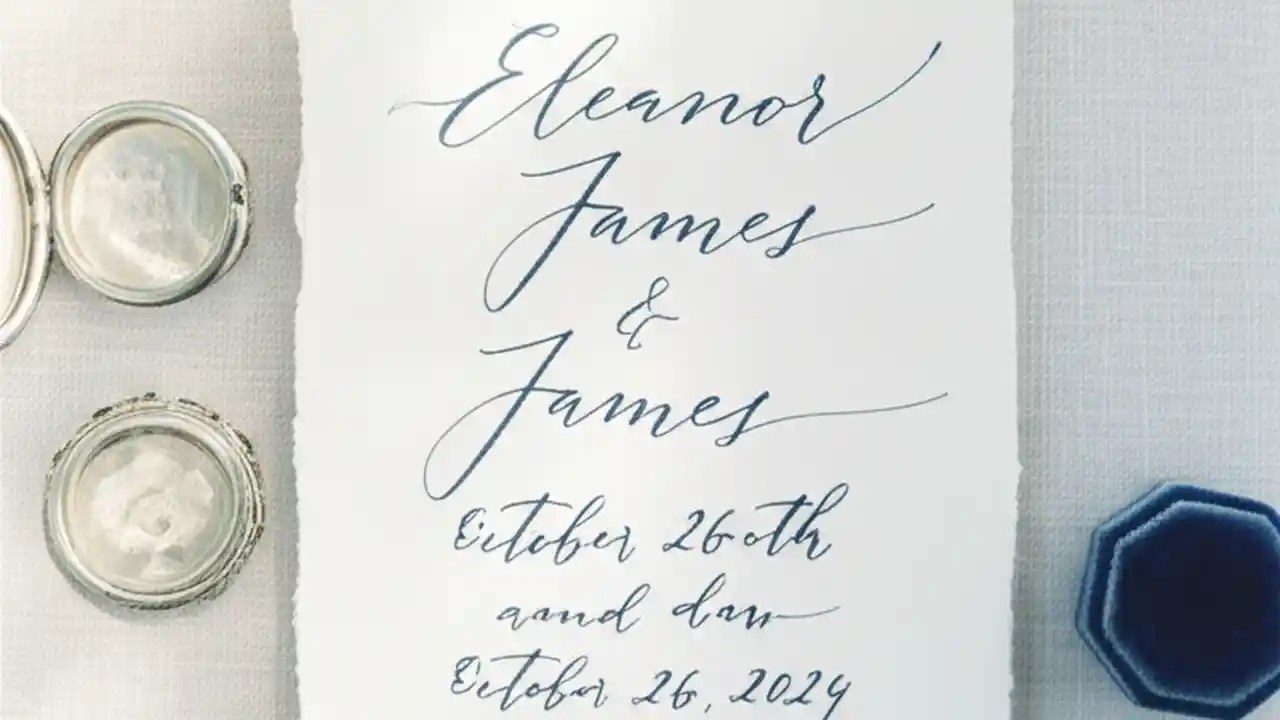 Eleanor
James
&
James
October 26th
and
October 26, 2024